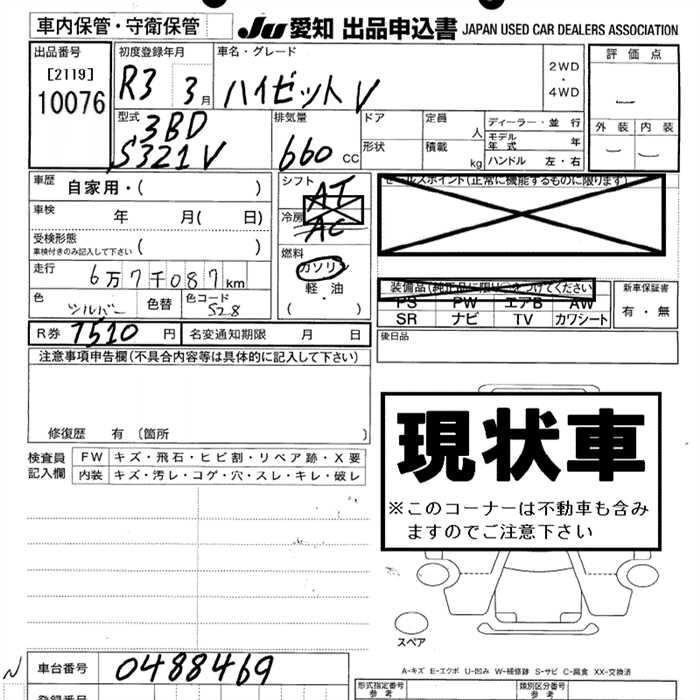 車内保管・守衛保管 JU 愛知 出品申込書 JAPAN USED CAR DEALERS ASSOCIATION
出品番号
[2119]
10076
初度登録年月
R3 3月
車名・グレード
ハイゼット V
2WD
・
4WD
評価点
—
外装 内装
— —
型式
3BD
S321V
排気量
660 CC
ドア
形状
定員 人
積載 kg
ディーラー・並行
モデル年式 年
ハンドル 左・右
車歴 自家用・( )
車検 年 月( 日)
受検形態
車検付きのみ記入して下さい ( )
走行 6万7千087km
色 シルバー 色替 色コード S28
シフト AT
冷房 AC
燃料
ガソリン
軽・油
( )
セールスポイント(正常に機能するものに限ります)
装備品(純正品に限り○をつけてください)
PS PW エアB AW
SR ナビ TV カワシート
新車保証書
有・無
R券 7510 円 名変通知期限 月 日
後日品
注意事項申告欄(不具合内容等は具体的に記入して下さい)
修復歴 有〔箇所 〕
検査員
記入欄
FW キズ・飛石・ヒビ割・リペア跡・X要
内装 キズ・汚レ・コゲ・穴・スレ・キレ・破レ
現状車
※このコーナーは不動車も含み
ますのでご注意下さい
スペア
A-キズ E-エクボ U-凹み W-補修跡 S-サビ C-腐食 XX-交換済
車台番号 0488469
登録番号
形式指定番号
参考
類別区分番号
参考